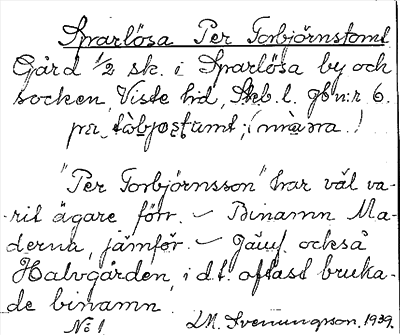 Sparlösa Per Torbjörnstomt
Gård 1/2 sk. i Sparlösa by och
socken, Viste hd, Skb. l. gbn:r 6.
"Per Torbjörnsson" har väl va-
rit ägare förr. – Binamn Ma-
derna, jämför. – Jämf. också
Halvgården, i d.t. oftast bruka-
de binamn.
No 1. LM. Svenungsson. 1939.